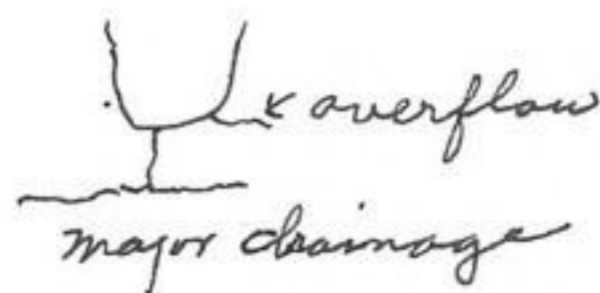 overflow
major drainage